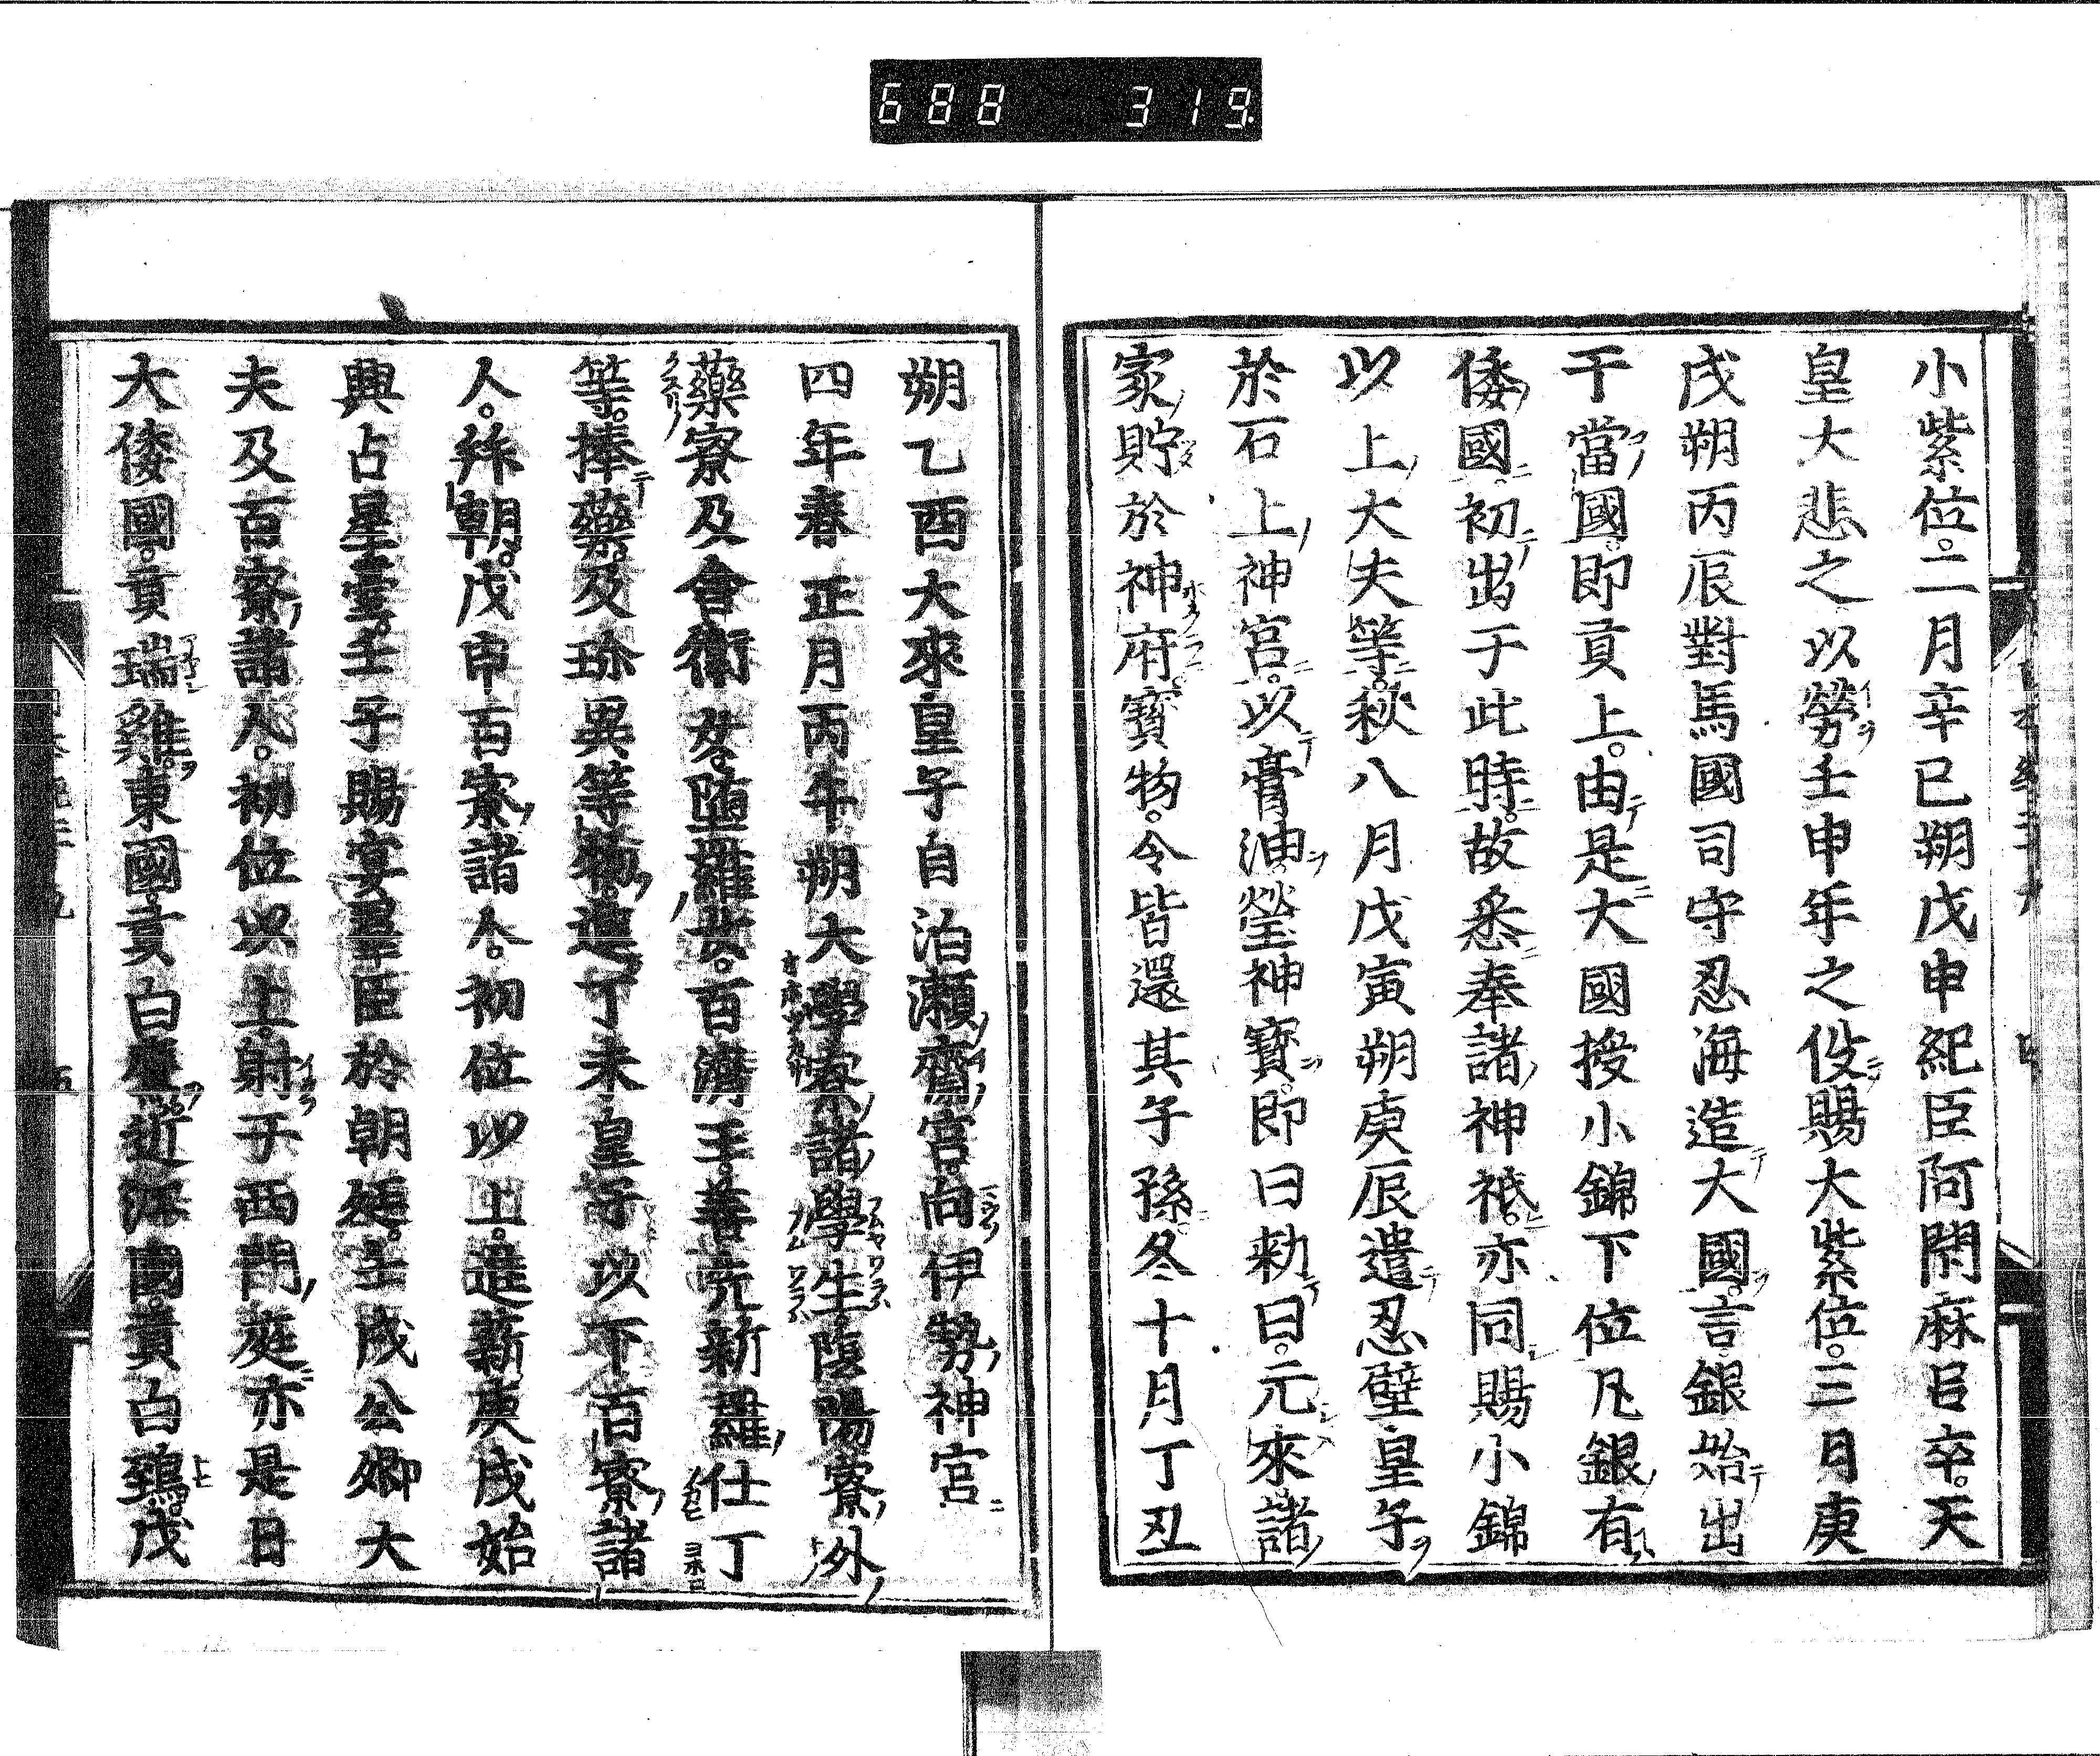 688 319
小紫位。二月辛巳朔戊申紀臣阿閇麻呂卒。天
皇大悲之以勞壬申年之役賜大紫位。三月庚
戌朔丙辰對馬國司守忍海造大國。言銀始出
于當國。即貢上。由是大國授小錦下位凡銀有
倭國初出于此時。故悉奉諸神祇。亦同賜小錦
以上大夫等。秋八月戊寅朔庚辰遣忍壁皇子
於石上神宮。以膏油瑩神寶。即曰勅曰。元來諸
家貯於神府。寶物。令皆還其子孫。冬十月丁丑
朔乙酉大來皇子自泊瀬齋宮。向伊勢神宮
四年春正月丙午朔大學寮諸學生。陰陽寮外
藥寮及舎衛女。墮羅女。百濟王。善光新羅仕丁
等。捧藥。及珍異等物。進丁未皇子以下百寮諸
人。拜朝。戊申百寮諸人。初位以上。進薪庚戌始
興占星臺。壬子賜宴羣臣於朝廷。壬戌公卿大
夫及百寮諸人。初位以上。射于西門庭亦是日
大倭國。貢瑞雞。東國。貢白鷹近江國。貢白鵄。戊